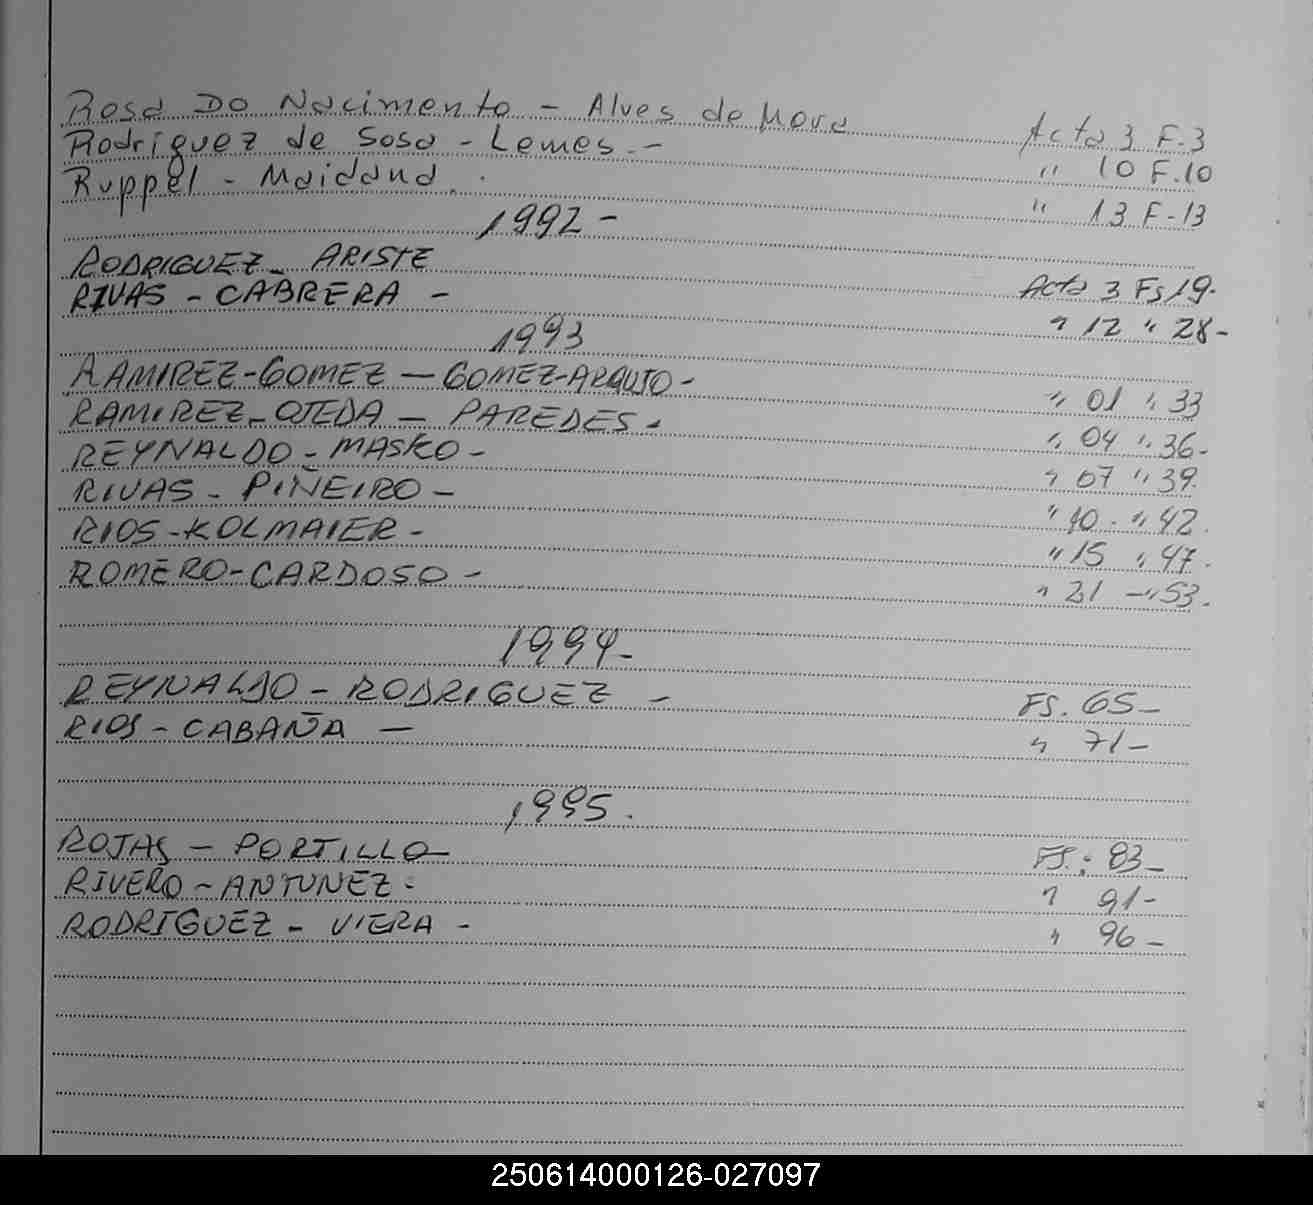 Rosa Do Nacimento - Alves de Mora Acta 3 F-3
Rodriguez de Sosa - Lemes.- " 10 F.10
Ruppel - Maidana. " 13 F-13
1992-
RODRIGUEZ - ARISTE Acta 3 Fs 19.
RIVAS - CABRERA - " 12 " 28-
1993
RAMIREZ-GOMEZ - GOMEZ-ARAUJO- " 01 " 33
RAMIREZ-OJEDA - PAREDES- " 04 " 36-
REYNALDO - MASKO - " 07 " 39.
RIVAS - PIÑEIRO - " 10 - " 42.
RIOS-KOLMAIER - " 15 " 47.
ROMERO-CARDOSO - " 21 - " 53.
1994-
REYNALDO - RODRIGUEZ - FS. 65-
RIOS - CABAÑA - " 71-
1995.
ROJAS - PORTILLO- FS.: 83-
RIVERO - ANTUNEZ- " 91-
RODRIGUEZ - VIERA - " 96-
250614000126-027097